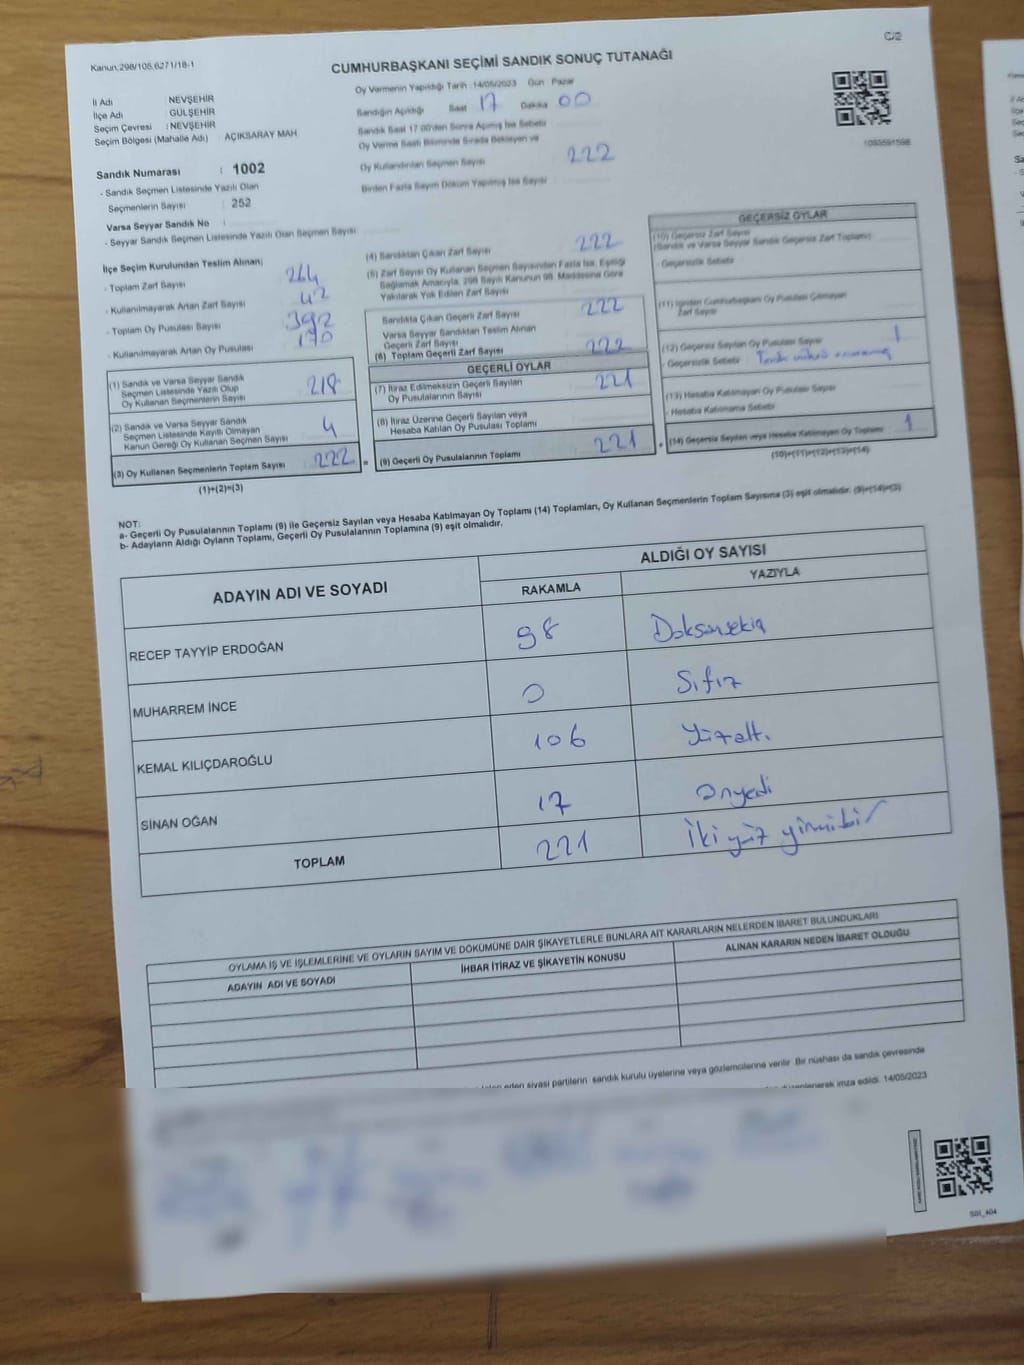 C/2
Kanun:298/105,6271/18-1
CUMHURBAŞKANI SEÇİMİ SANDIK SONUÇ TUTANAĞI
Oy Vermenin Yapıldığı Tarih :14/05/2023 Gün : Pazar
İl Adı : NEVŞEHİR
İlçe Adı : GÜLŞEHİR
Seçim Çevresi : NEVŞEHİR
Seçim Bölgesi (Mahalle Adı) : AÇIKSARAY MAH.
Sandığın Açıldığı Saat 17 Dakika 00
Sandık Saat 17.00'den Sonra Açılmış İse Sebebi
Oy Verme Saati Bitiminde Sırada Bekleyen ve
Oy Kullandırılan Seçmen Sayısı 222
Birden Fazla Sayım Döküm Yapılmış İse Sayısı
Sandık Numarası : 1002
- Sandık Seçmen Listesinde Yazılı Olan
Seçmenlerin Sayısı : 252
Varsa Seyyar Sandık No :
- Seyyar Sandık Seçmen Listesinde Yazılı Olan Seçmen Sayısı :
İlçe Seçim Kurulundan Teslim Alınan;
- Toplam Zarf Sayısı : 264
- Kullanılmayarak Artan Zarf Sayısı : 42
- Toplam Oy Pusulası Sayısı : 392
- Kullanılmayarak Artan Oy Pusulası : 170
(1) Sandık ve Varsa Seyyar Sandık
Seçmen Listesinde Yazılı Olup
Oy Kullanan Seçmenlerin Sayısı 218
(2) Sandık ve Varsa Seyyar Sandık
Seçmen Listesinde Kayıtlı Olmayan
Kanun Gereği Oy Kullanan Seçmen Sayısı 4
(3) Oy Kullanan Seçmenlerin Toplam Sayısı 222 =
(1)+(2)=(3)
(4) Sandıktan Çıkan Zarf Sayısı 222
(5) Zarf Sayısı Oy Kullanan Seçmen Sayısından Fazla İse, Eşitliği
Sağlamak Amacıyla, 298 Sayılı Kanunun 98. Maddesine Göre
Yakılarak Yok Edilen Zarf Sayısı
Sandıkta Çıkan Geçerli Zarf Sayısı 222
Varsa Seyyar Sandıktan Teslim Alınan
Geçerli Zarf Sayısı
(6) Toplam Geçerli Zarf Sayısı 222
GEÇERLİ OYLAR
(7) İtiraz Edilmeksizin Geçerli Sayılan
Oy Pusulalarının Sayısı 221
(8) İtiraz Üzerine Geçerli Sayılan veya
Hesaba Katılan Oy Pusulası Toplamı
(9) Geçerli Oy Pusulalarının Toplamı 221 +
GEÇERSİZ OYLAR
(10) Geçersiz Zarf Sayısı
(Sandık ve Varsa Seyyar Sandık Geçersiz Zarf Toplamı)
- Geçersizlik Sebebi
(11) İçinden Cumhurbaşkanı Oy Pusulası Çıkmayan
Zarf Sayısı
(12) Geçersiz Sayılan Oy Pusulası Sayısı 1
- Geçersizlik Sebebi :
(13) Hesaba Katılmayan Oy Pusulası Sayısı
- Hesaba Katılmama Sebebi
(14) Geçersiz Sayılan veya Hesaba Katılmayan Oy Toplamı 1
(10)+(11)+(12)+(13)=(14)
NOT:
a- Geçerli Oy Pusulalarının Toplamı (9) ile Geçersiz Sayılan veya Hesaba Katılmayan Oy Toplamı (14) Toplamları, Oy Kullanan Seçmenlerin Toplam Sayısına (3) eşit olmalıdır. (9)+(14)=(3)
b- Adayların Aldığı Oyların Toplamı, Geçerli Oy Pusulalarının Toplamına (9) eşit olmalıdır.
ADAYIN ADI VE SOYADI
ALDIĞI OY SAYISI
RAKAMLA YAZIYLA
RECEP TAYYİP ERDOĞAN 98 Doksansekiz
MUHARREM İNCE 0 Sıfır
KEMAL KILIÇDAROĞLU 106 Yüzaltı
SİNAN OĞAN 17 Onyedi
TOPLAM 221 İki yüz yirmibir
OYLAMA İŞ VE İŞLEMLERİNE VE OYLARIN SAYIM VE DÖKÜMÜNE DAİR ŞİKAYETLERLE BUNLARA AİT KARARLARIN NELERDEN İBARET BULUNDUKLARI
ADAYIN ADI VE SOYADI İHBAR İTİRAZ VE ŞİKAYETİN KONUSU ALINAN KARARIN NEDEN İBARET OLDUĞU
eden siyasi partilerin sandık kurulu üyelerine veya gözlemcilerine verilir. Bir nüshası da sandık çevresinde
düzenlenerek imza edildi. 14/05/2023
S01_404